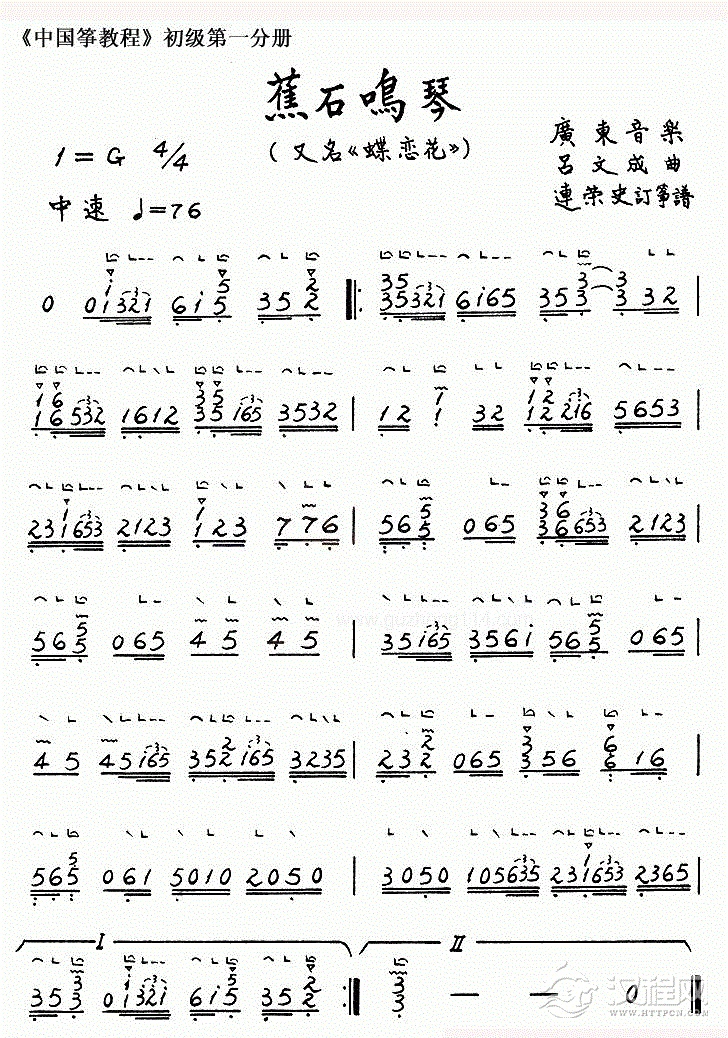 《中国筝教程》初级第一分册
蕉石鳴琴
(又名《蝶恋花》)
廣東音樂
1=G 4/4
呂文成曲
中速 ♩=76
連荣史訂筝譜
0 01321 615 352 3535321 6165 353 3 332
1616532 1612 3535165 3532 12 1 32 1212216 5653
231653 2123 123 776 565 065 3636653 2123
565 065 45 45 35165 3561 565 065
45 45165 352165 3235 232 065 3356 6616
565 061 5010 2050 3050 105635 231653 2365
I II
353 01321 615 352 3 — — 0
汉程网
WWW.HTTPCN.COM